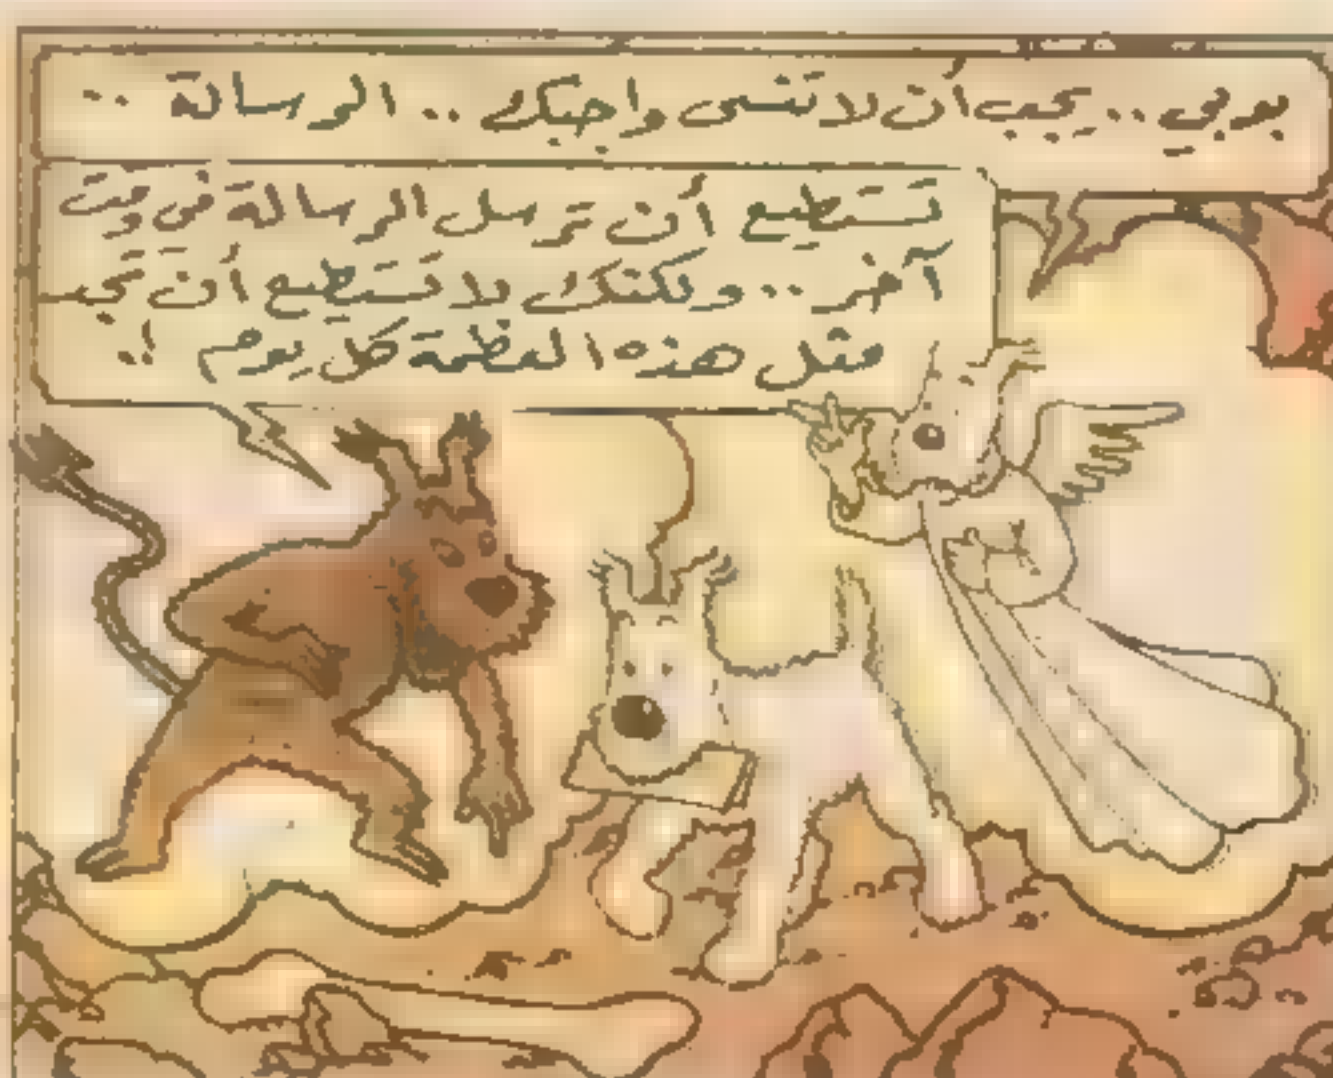 بوبي .. يجب أن لا تنسى واجبك .. الرسالة ..
تستطيع أن ترسل الرسالة في وقت
آخر .. ولكنك لا تستطيع أن تجد
مثل هذه العظمة كل يوم !.